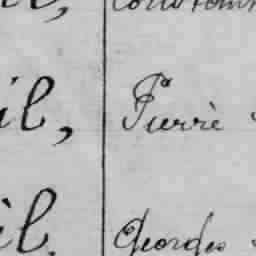 il, Pierrè
il, Georges